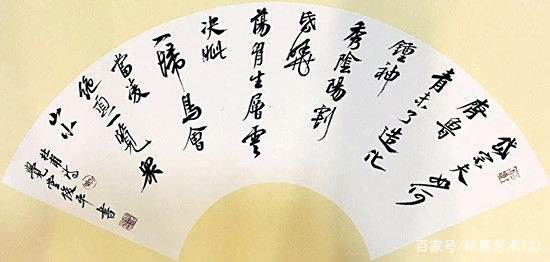 岱宗夫如何
齊魯
青未了造化
鍾神
秀陰陽割
昏曉
蕩胷生層雲
決眦
入歸鳥會
當凌
絕頂一覽衆
山小
杜甫詩
俊平書
百家号/格墨艺术123